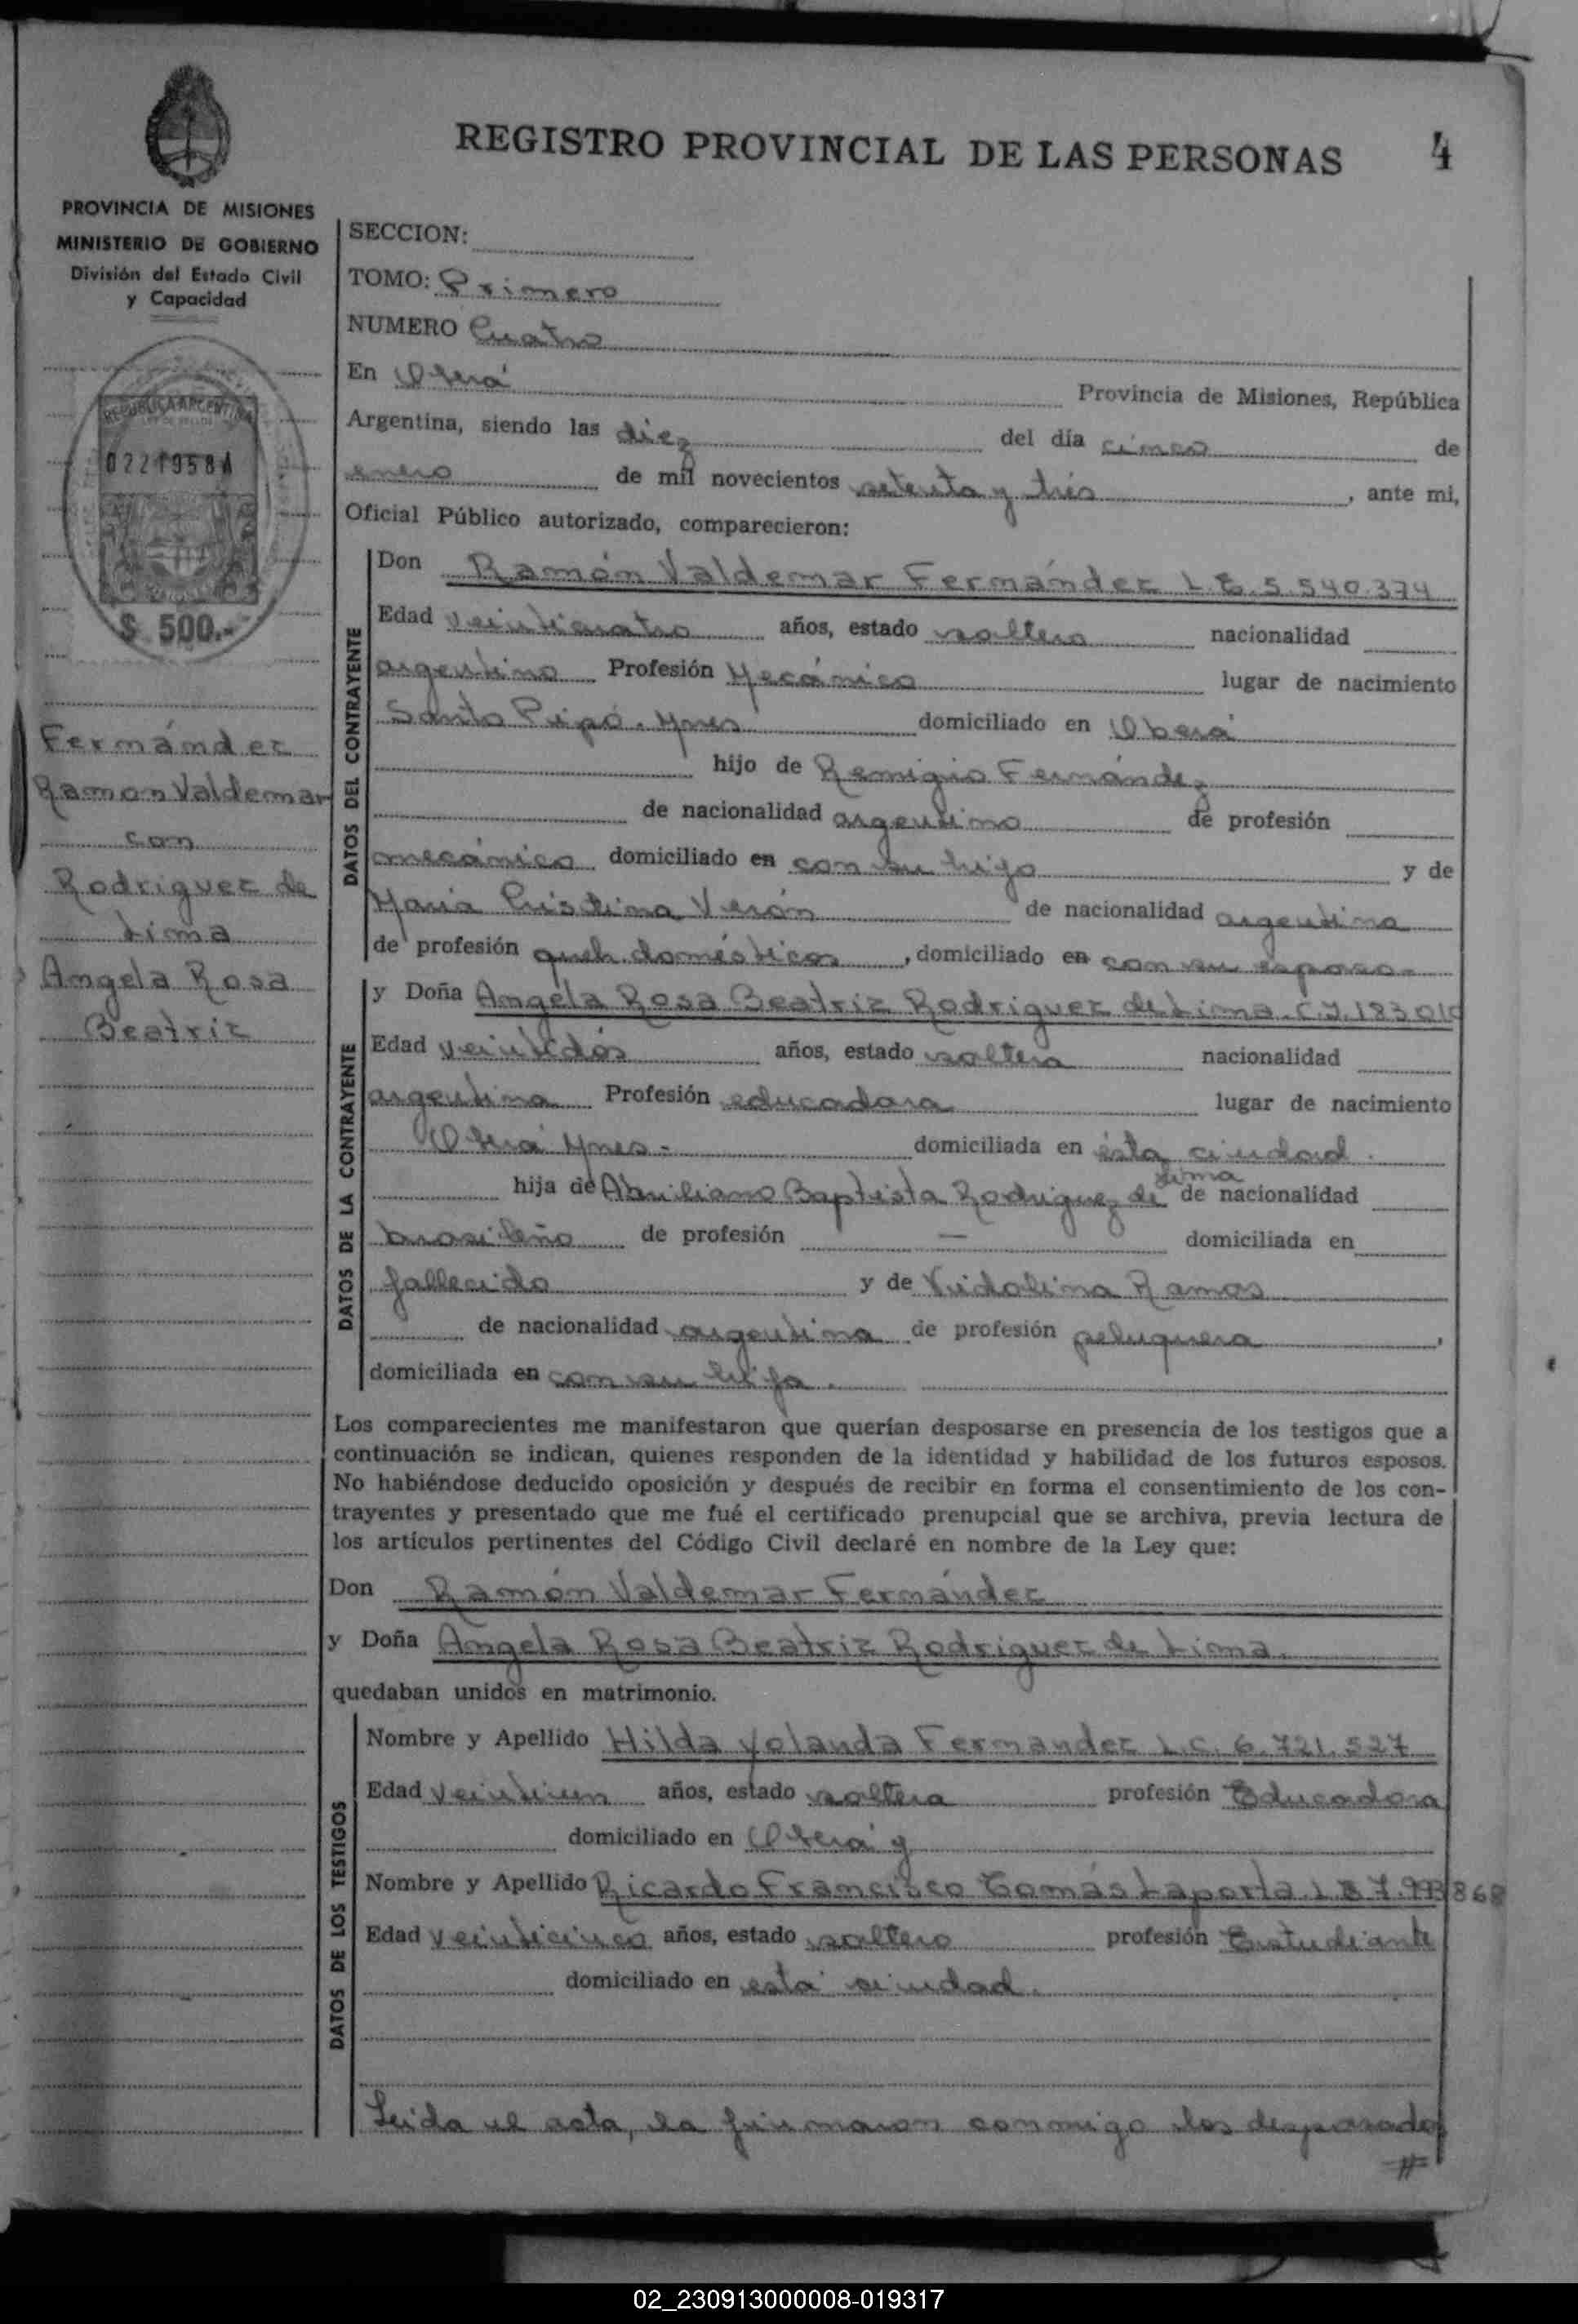 REGISTRO PROVINCIAL DE LAS PERSONAS 4
PROVINCIA DE MISIONES
MINISTERIO DE GOBIERNO
División del Estado Civil
y Capacidad
REPUBLICA ARGENTINA
0221958A
$ 500.-
Fernández
Ramon Valdemar
con
Rodriguez de
Lima
Angela Rosa
Beatriz
SECCION:
TOMO: Primero
NUMERO Cuatro
En Oberá Provincia de Misiones, República
Argentina, siendo las diez del día cinco de
enero de mil novecientos setenta y trés, ante mi,
Oficial Público autorizado, comparecieron:
DATOS DEL CONTRAYENTE
Don Ramón Valdemar Fernández L.E. 5.540.374
Edad veinticuatro años, estado soltero nacionalidad
argentino Profesión Mecánico lugar de nacimiento
Santo Pipó. Mnes domiciliado en Oberá
hijo de Remigio Fernández
de nacionalidad argentino de profesión
mecánico domiciliado en con su hijo y de
Maria Cristina Verón de nacionalidad argentina
de profesión queh. domésticos, domiciliado en con su esposo-
DATOS DE LA CONTRAYENTE
y Doña Angela Rosa Beatriz Rodriguez de Lima. C.I. 183010
Edad veintidós años, estado soltera nacionalidad
argentina Profesión educadora lugar de nacimiento
Oberá Mnes- domiciliada en ésta ciudad.
hija de Abriliano Baptista Rodriguez de Lima de nacionalidad
brasileño de profesión — domiciliada en
fallecido y de Vidolina Ramos
de nacionalidad argentina de profesión peluquera,
domiciliada en con su hija.
Los comparecientes me manifestaron que querían desposarse en presencia de los testigos que a
continuación se indican, quienes responden de la identidad y habilidad de los futuros esposos.
No habiéndose deducido oposición y después de recibir en forma el consentimiento de los con-
trayentes y presentado que me fué el certificado prenupcial que se archiva, previa lectura de
los artículos pertinentes del Código Civil declaré en nombre de la Ley que:
Don Ramón Valdemar Fernández
y Doña Angela Rosa Beatriz Rodriguez de Lima.
quedaban unidos en matrimonio.
DATOS DE LOS TESTIGOS
Nombre y Apellido Hilda Yolanda Fernandez L.C. 6.721.527
Edad veintiun años, estado soltera profesión Educadora
domiciliado en Oberá y
Nombre y Apellido Ricardo Francisco Tomás Laporta L E 7.993868
Edad veinticinco años, estado soltero profesión Estudiante
domiciliado en esta ciudad.
Leida el acta, la firmaron conmigo los desposados
#
02_230913000008-019317